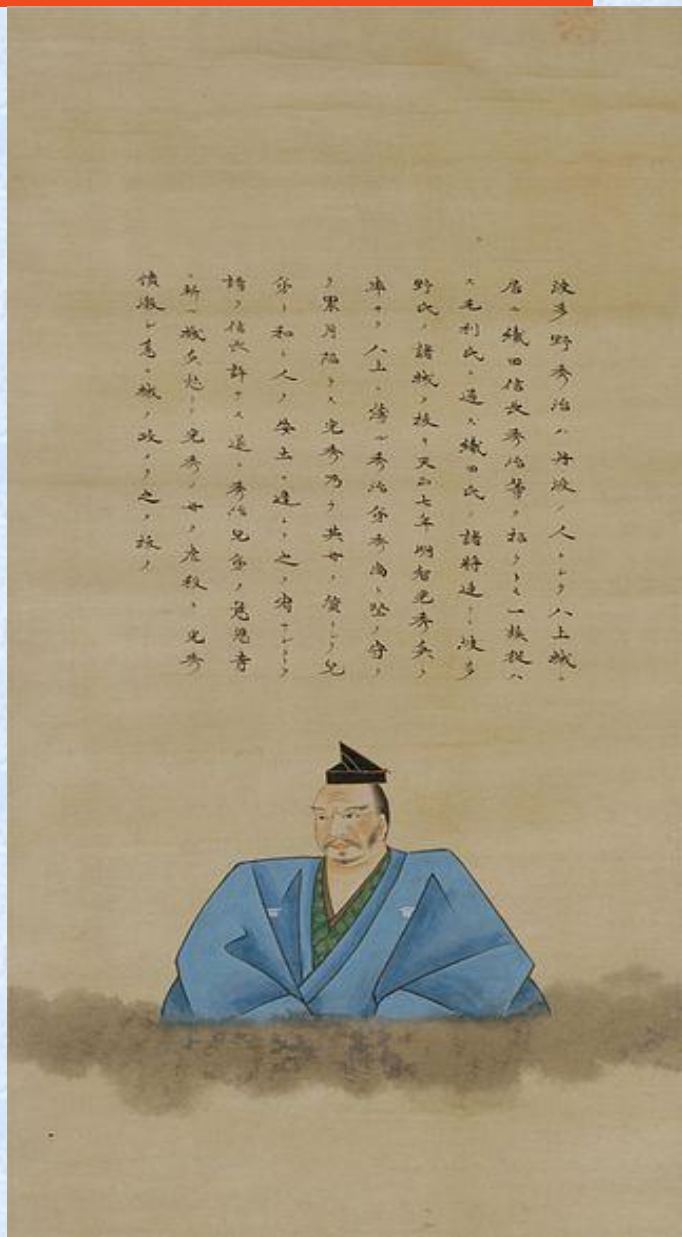 波多野秀治ハ丹波ノ人ニシテ八上城ニ
居ル織田信長秀治等ヲ招クトモ一族従ハ
ス毛利氏ニ通ス織田氏ノ諸将連リニ波多
野氏ノ諸城ヲ抜ク天正七年明智光秀兵ヲ
率ヰテ八上ニ薄ル秀治弟秀尚ト堅ク守リ
累月陥ラス光秀乃チ其母ヲ質トシテ兄
弟ト和シ人ヲ安土ニ遣ハシ之ヲ宥サンコトヲ
請フ信長許サス遂ニ秀治兄弟ヲ慈恩寺
ニ斬ル城兵怒リ光秀ノ母ヲ殺ス光秀
憤激シ急ニ城ヲ攻メテ之ヲ抜ク